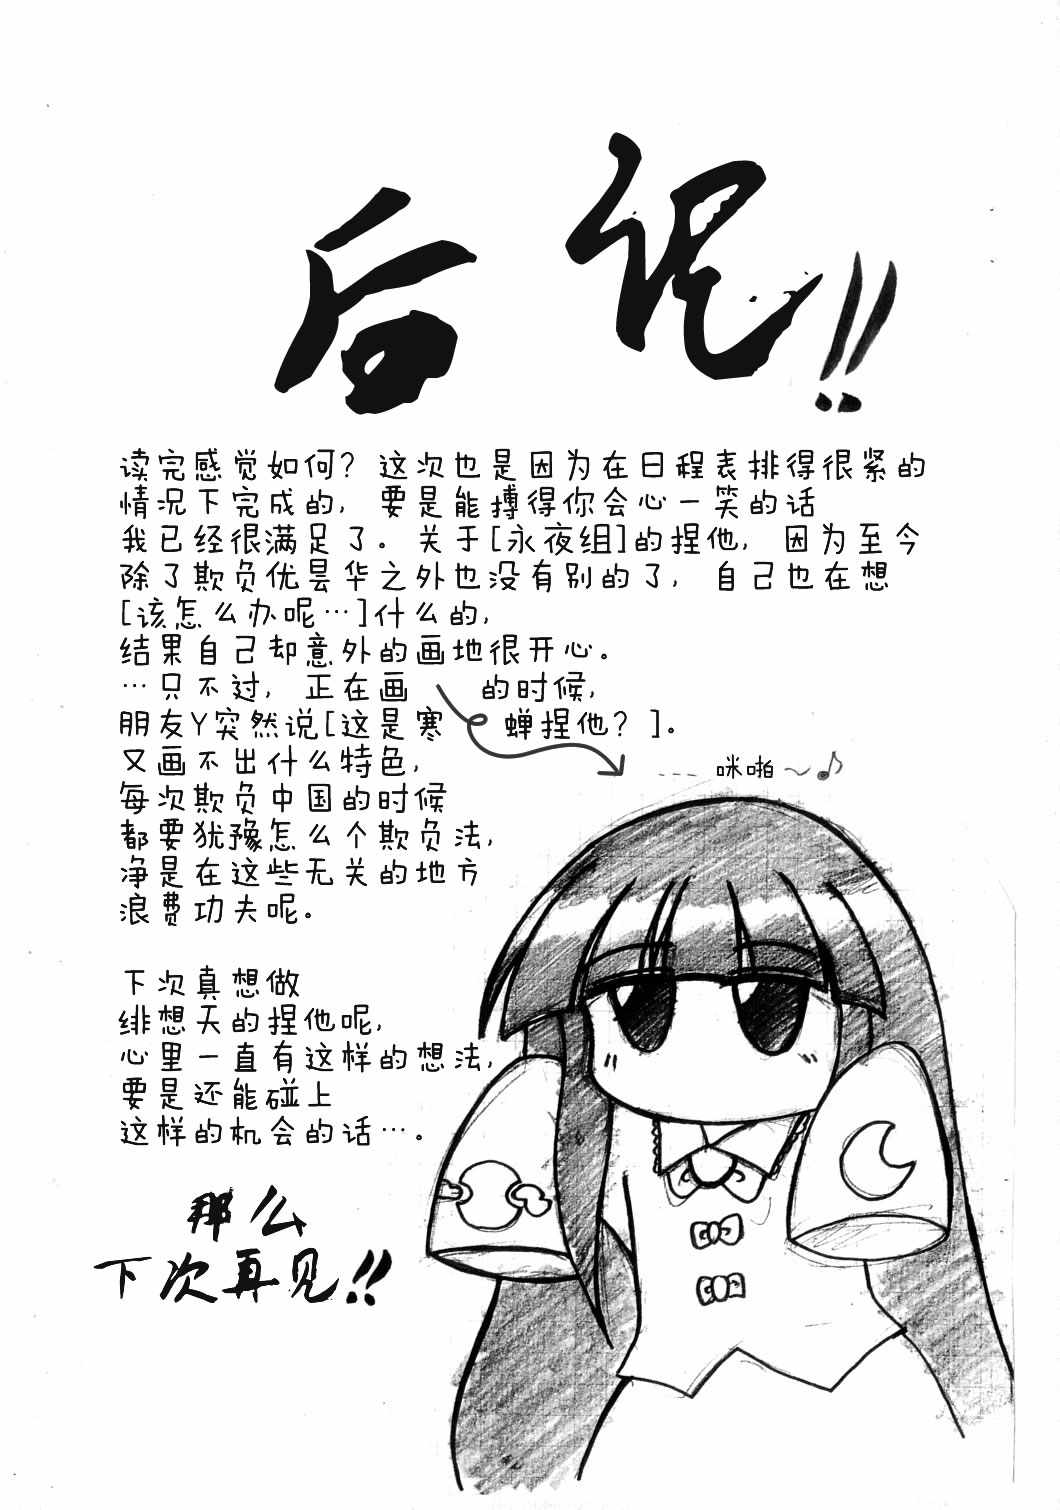 后记!!
读完感觉如何？ 这次也是因为在日程表排得很紧的
情况下完成的， 要是能搏得你会心一笑的话
我已经很满足了。关于[永夜组]的捏他， 因为至今
除了欺负优昙华之外也没有别的了， 自己也在想
[该怎么办呢…]什么的，
结果自己却意外的画地很开心。
…只不过， 正在画 的时候，
朋友Y突然说[这是寒 蝉捏他？ ]。
又画不出什么特色，
--- 咪啪～♪
每次欺负中国的时候
都要犹豫怎么个欺负法，
净是在这些无关的地方
浪费功夫呢。
下次真想做
绯想天的捏他呢，
心里一直有这样的想法，
要是还能碰上
这样的机会的话…。
那么
下次再见!!